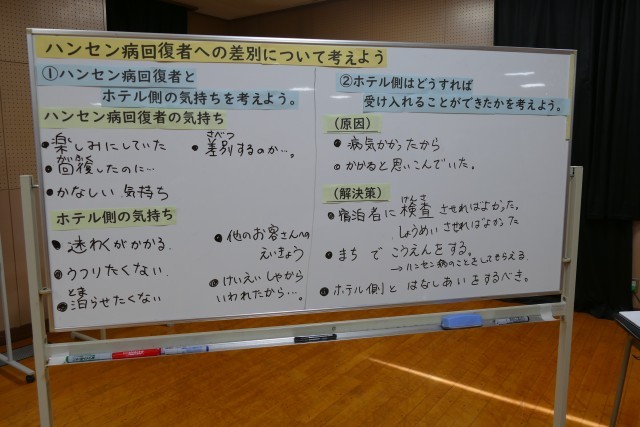 ハンセン病回復者への差別について考えよう
①ハンセン病回復者と
ホテル側の気持ちを考えよう。
ハンセン病回復者の気持ち
●楽しみにしていた
かいふく
●回復したのに…
●かなしい気持ち
さべつ
●差別するのか…。
ホテル側の気持ち
●迷わくがかかる.
●うつりたくない.
とま
●泊らせたくない
●他のお客さんへの
えいきょう
●けいえいしゃから
いわれたから…。
②ホテル側はどうすれば
受け入れることができたかを考えよう。
(原因)
●病気がかったから
●かかると思いこんでいた。
(解決策)
けんさ
●宿泊者に検査させればよかった。
しょうめいさせればよかった
●まちでこうえんをする。
→ハンセン病のことをしてもらえる.
●ホテル側とはなしあいをするべき。